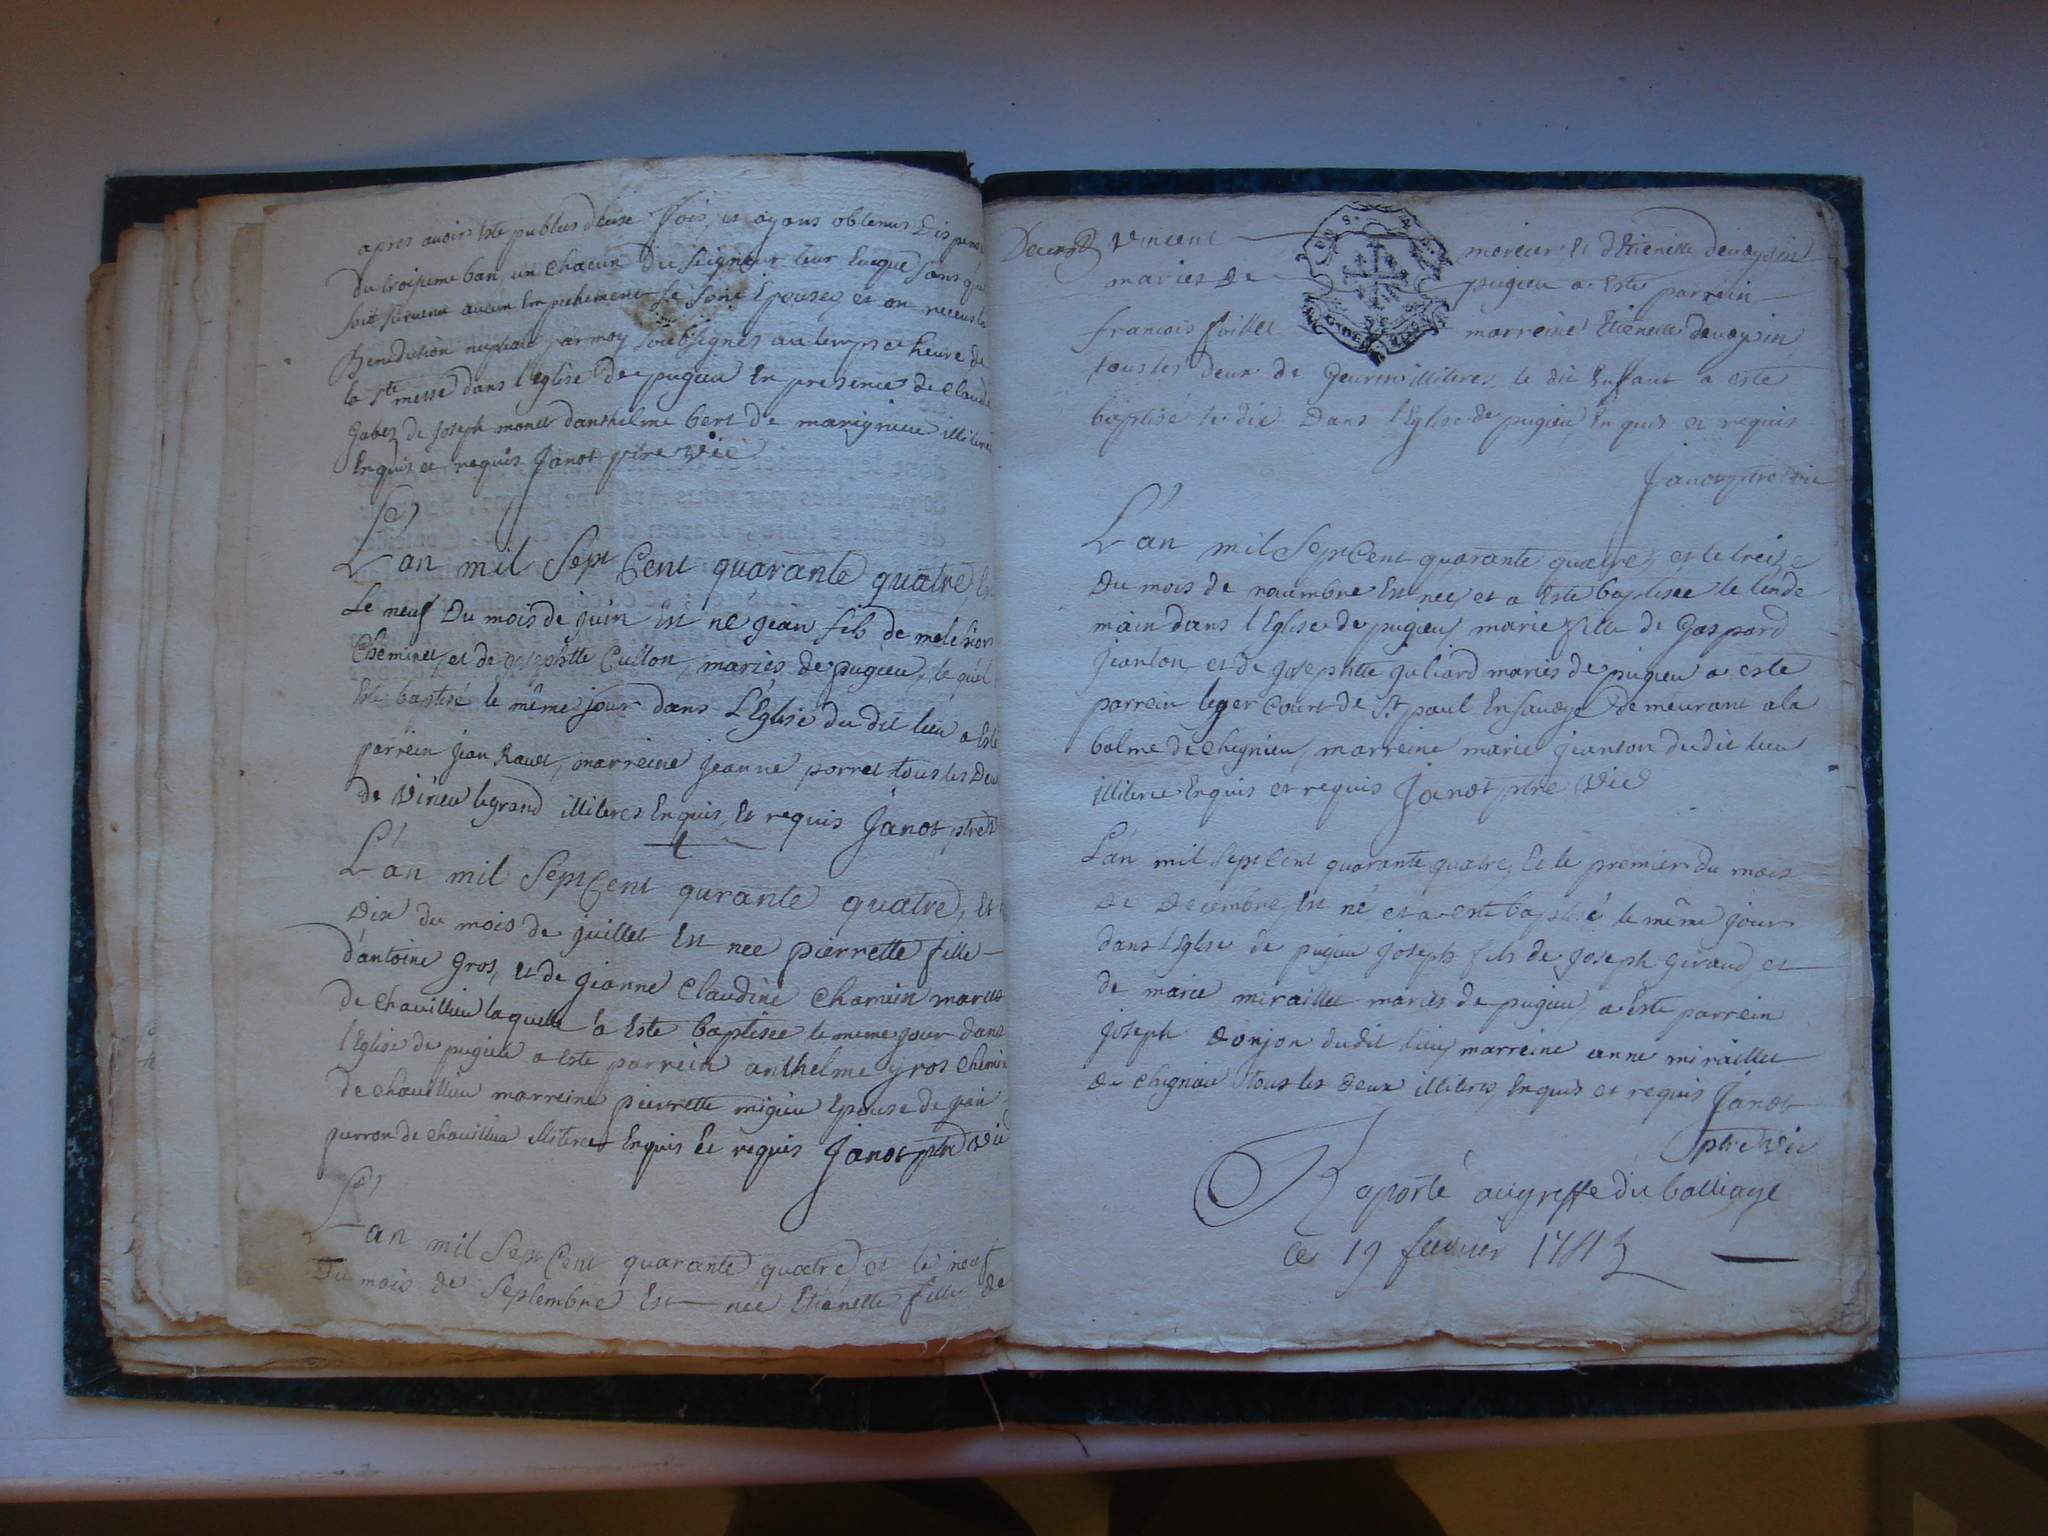 apres avoir Esté publies deuse fois, et ayans obtenus Dispense
du troisieme ban un chacun du seigneur leur Eveque sans qu'il
soit survenu aucun Empechement se sont Epousez et on receus la
Benediction nuptiale par moy soubsignes au temps et heure de
la Ste messe dans l'Eglise de pugieu En presence de claude
gabet de joseph monet danthelme bert de marignieu illiteres
Enquis et requis Janot ptre vic
L'an mil Sept Cent quarante quatre, Et
Le neuf Du mois de juin Est né jean fils de melchior
Cheminet et de josephtte Cullon, mariés de pugieu, le quel
Esté baptisé le même jour dans L'Eglise du dit lieu a Esté
parrein jean Ravet, marreine jeanne porret tous les deux
de virieu legrand illiteres Enquis, Et requis Janot ptre v
L'an mil Sept Cent qurante quatre, Et
dix du mois de juillet Est nee pierrette fille
d'antoine gros, et de jeanne Claudine chamein maries
de chavillieu laquelle a Este baptisee le meme jour dans
l'Eglise de pugieu a este parrein anthelme gros chemin
de chavillieu marreine pierrette migieu Epouse de jean
perron de chavillieu illiteres Enquis Et requis Janot ptre Vic
L'an mil Sept Cent quarante quatre et le neuf
Du mois de Septembre Est nee Etienette fille de
Vincent mercier et d'Etienette devaysin
mariés de pugieu a Esté parrein
francois foillet marreine Etienette devaysin
tous les deux de illiteres, le dit Enfant a esté
baptisé le dit Dans l'Eglise de pugieu Enquis et requis
Janot ptre vic
L'an mil Sept Cent quarante quatre, et le treize
du mois de novembre Est nee, et a Este baptisee le lende
main dans l'Eglise de pugieu marie fille de Gaspard
jeanton et de josephtte juliard mariés de pugieu a este
parrein leger Court de St paul En savoye demeurant a la
balme de chegnieu, marreine marie jeanton dudit lieu
illiteres Enquis et requis Janot ptre Vic
L'an mil Sept Cent quarante quatre, Et le premier du mois
de decembre Est né et a este baptisé le même jour
dans l'Eglise de pugieu joseph fils de joseph giraud et
de marie miraillet mariés de pugieu a este parrein
joseph donjon dudit lieu, marreine anne miraillet
de chegnieu tous les deux illiteres, Enquis et requis Janot
ptre Vic
Raporté au greffe du balliage
ce 19 fevrier 17